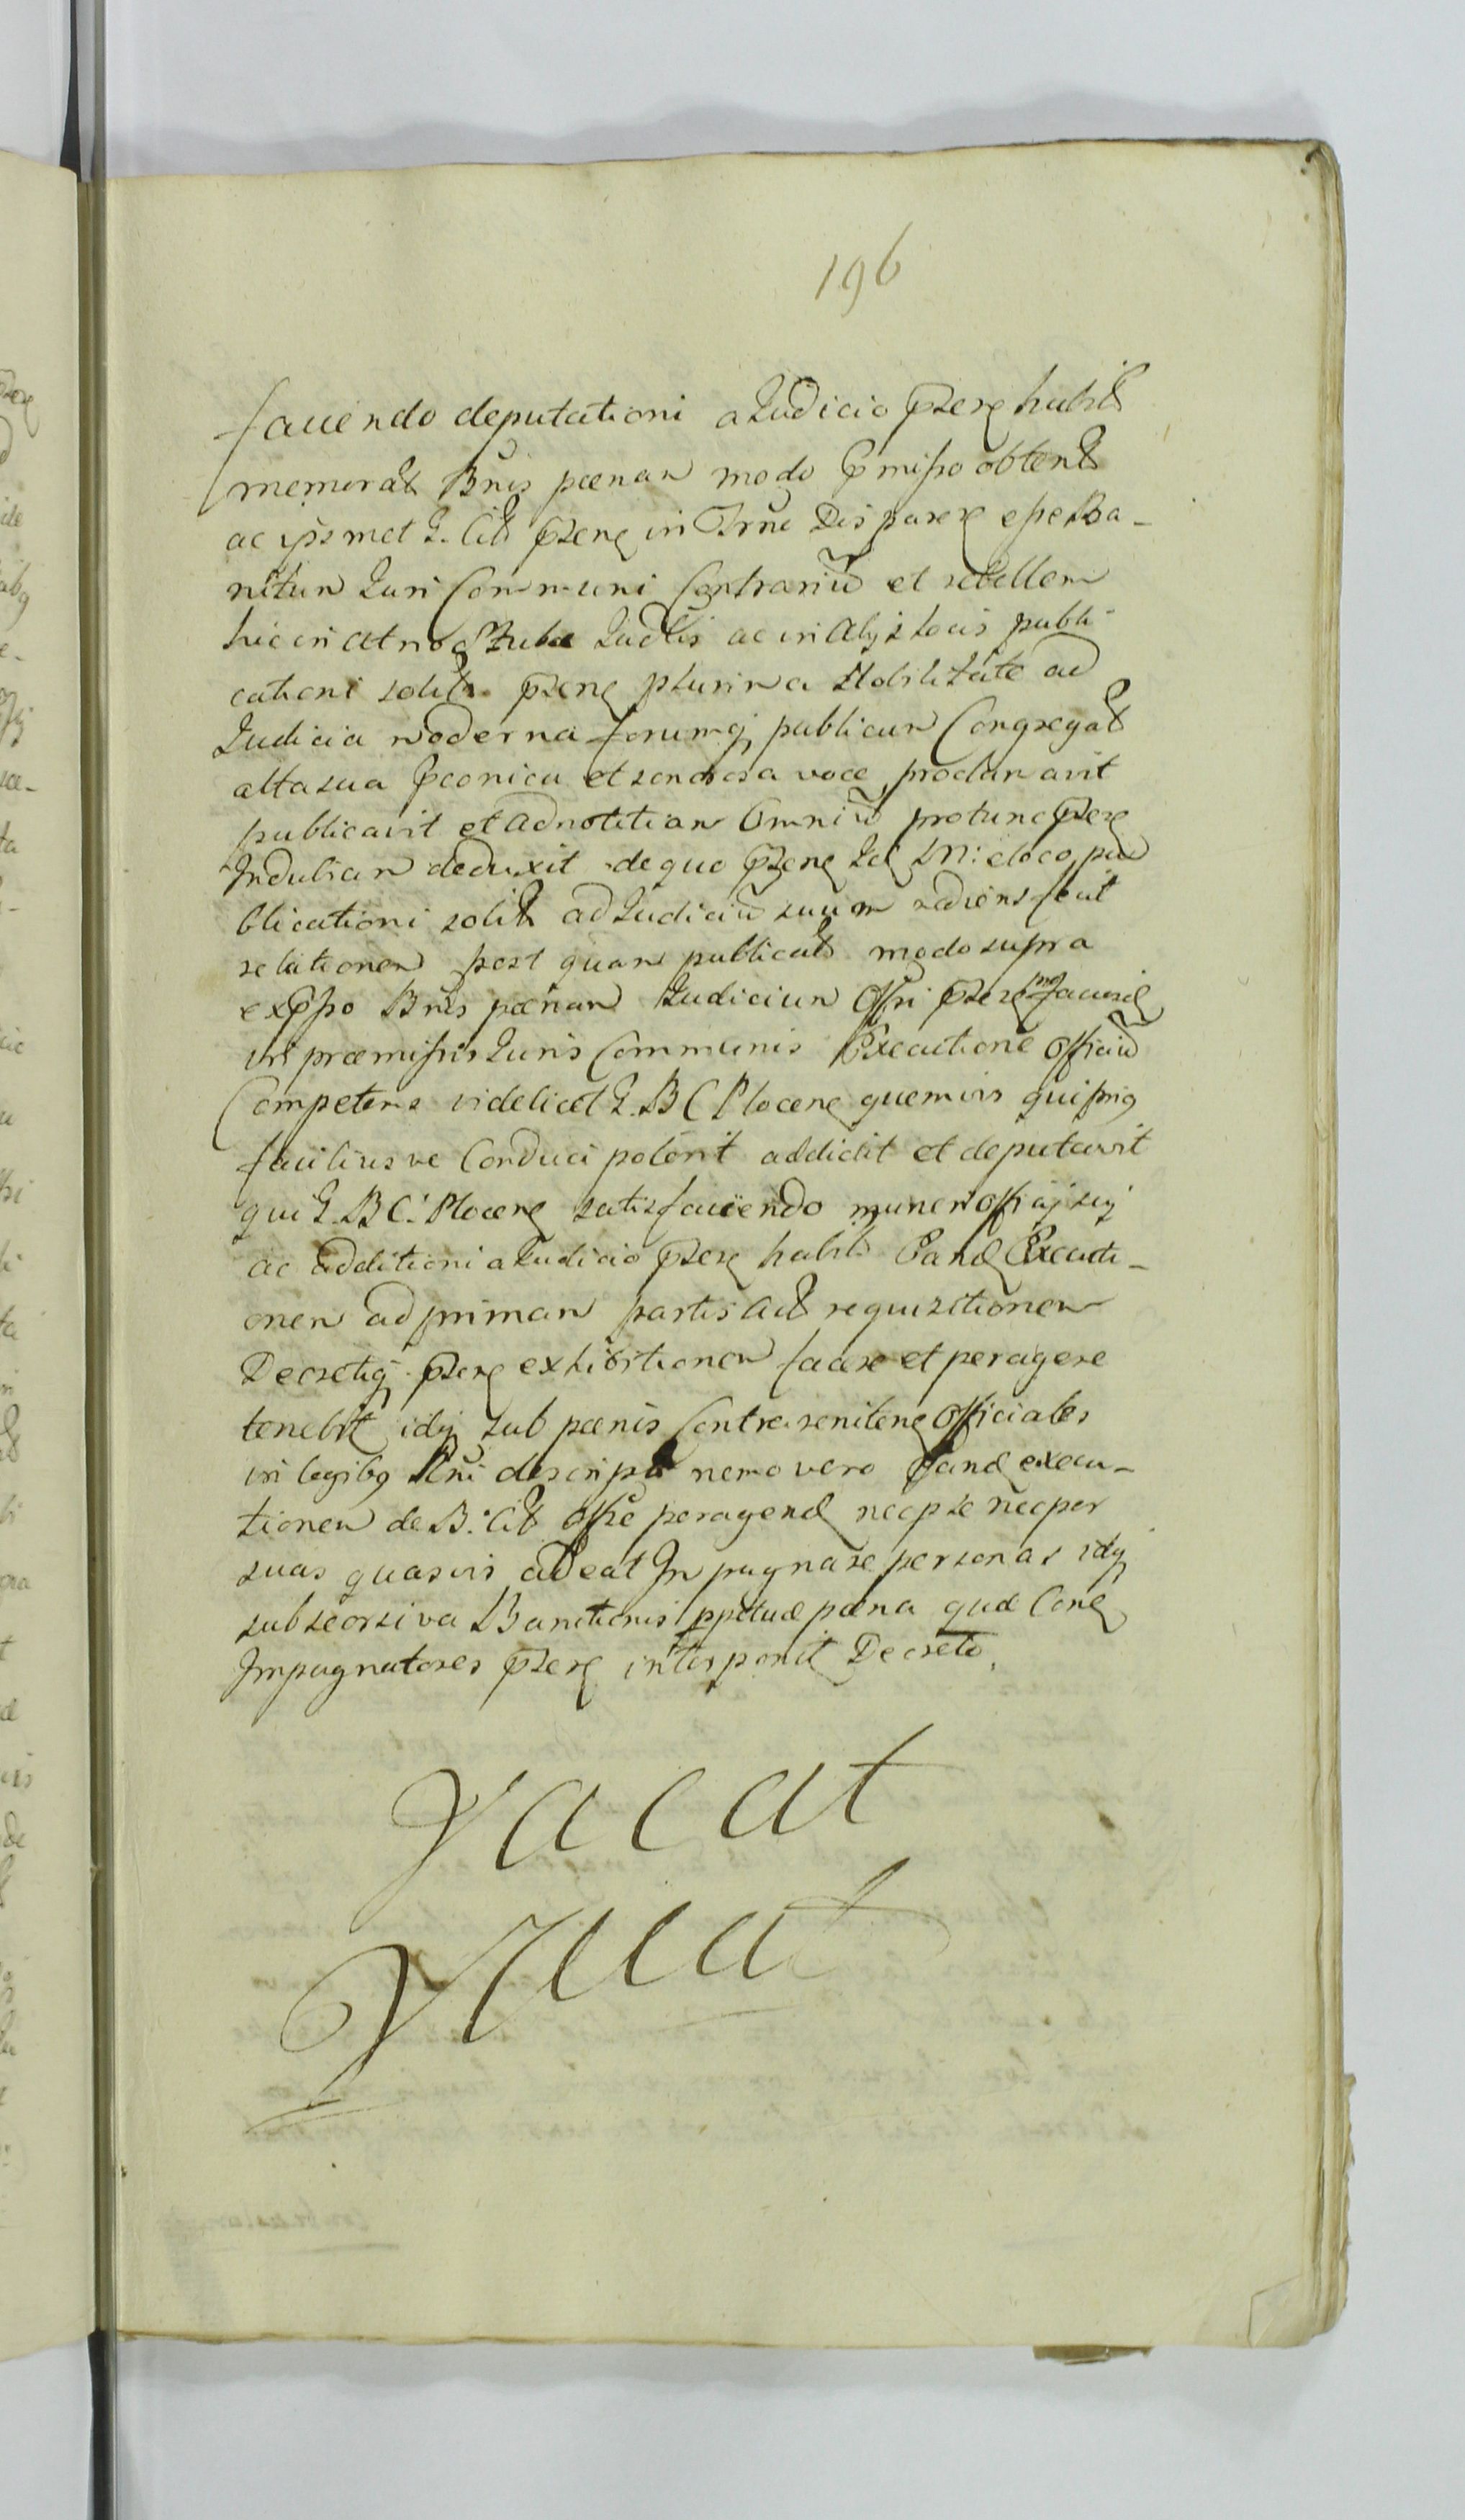 196
faciendo deputationi a Judicio prsene habit
memorat Bnis pœnam modo pmisso obtent
ac ipsmet G. Cit prsene in Trno Dis parere esse Ba-
nitum Juri Communi Contrariū et rebellem
hic in atrio Stubæ Judlis ac in alijs locis publi-
cationi solit prsene plurima Nobilitate ad
Judicia moderna forumq publicum Congregat
alta sua pconica et sonorosa voce proclamavit
publicavit et ad notitiam Omniū pro tunc prsene
Indubiam deduxit de quo prsene Jdē M: e loco pu
blicationi solit ad Judiciū suum rediens fecit
relationem post quam publicat modo supra
expsso Bnis pœnam Judicium Offi prsens pro faciend
in præmissis Juris Communis Executione Officiū
Competens videlicet G. B C Plocens quemvis qui prius
faciliusve Conduci poterit addidit et deputavit
qui G. B C. Plocens satisfaciendo muneri Officij sui
ac additioni a Judicio prsene habit Eand Executi-
onem ad primam partis Act requisitionem
Decretiq prsens exhibitionem facere et peragere
tenebit idq sub pœnis Contra renitene Officiales
in legibq Rni descript nemo vero Eand execu-
tionem de B: Cit Offse peragend nec p se nec per
suas quasvis audeat Impugnare personas idq
sub seorsiva Banitionis ppetuæ pœna quæ Cone
Impugnatores prsene interponit Decreto.
Vacat
Vacat